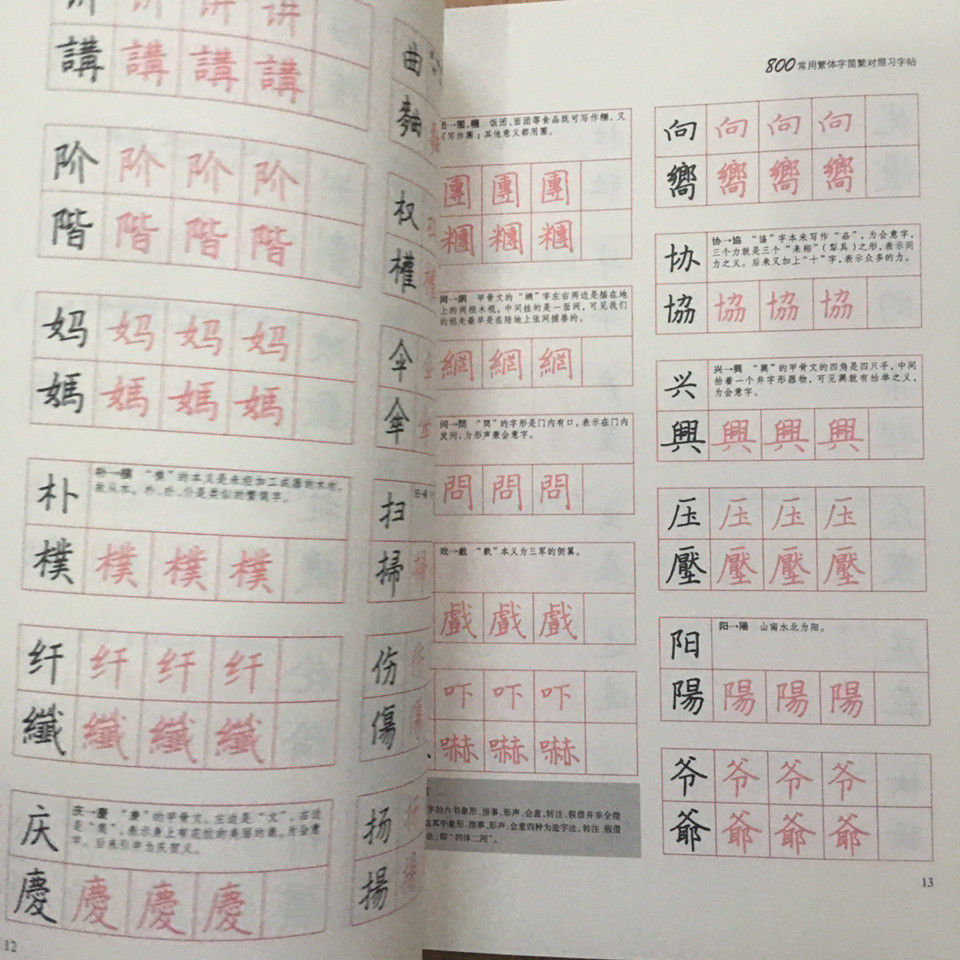 讲 讲 讲 讲
講 講 講 講
阶 阶 阶 阶
階 階 階 階
妈 妈 妈 妈
媽 媽 媽 媽
朴
朴→樸 “樸”的本义是未经加工成器的木材,
故从木。
樸 樸 樸 樸
纤 纤 纤 纤
纖 纖 纖 纖
庆
庆→慶 “慶”的甲骨文,左边是“文”,右边
慶 慶 慶 慶
12
曲
麯
权
權
伞
傘
扫
掃
伤
傷
扬
揚
800常用繁体字简繁对照习字帖
→團、糰 饭团、面团等食品既可写作糰,又
写作團;其他意义都用團。
團 團 團
糰 糰 糰
网→網 甲骨文的“網”字左右两边是插在地
上的两根木棍,中间挂的是一面网,可见我们
的祖先最早是在陆地上张网捕兽的。
網 網 網
问→問 “問”的字形是门内有口,表示在门内
发问,为形声兼会意字。
問 問 問
戏→戲 “戲”本义为三军的侧翼。
戲 戲 戲
吓 吓 吓
嚇 嚇 嚇
字的六书象形、指事、形声、会意、转注、假借并非全指
其中象形、指事、形声、会意四种为造字法,转注、假借
法,即“四体二用”。
向 向 向 向
嚮 嚮 嚮 嚮
协
协→協 “協”字本来写作“劦”,为会意字,
三个力就是三个“耒耜”(犁具)之形,表示同
力之义。后来又加上“十”字,表示众多的力。
協 協 協 協
兴
兴→興 “興”的甲骨文的四角是四只手,中间
抬着一个井字形器物,可见興就有抬举之义,
为会意字。
興 興 興 興
压 压 压 压
壓 壓 壓 壓
阳
阳→陽 山南水北为阳。
陽 陽 陽 陽
爷 爷 爷 爷
爺 爺 爺 爺
13